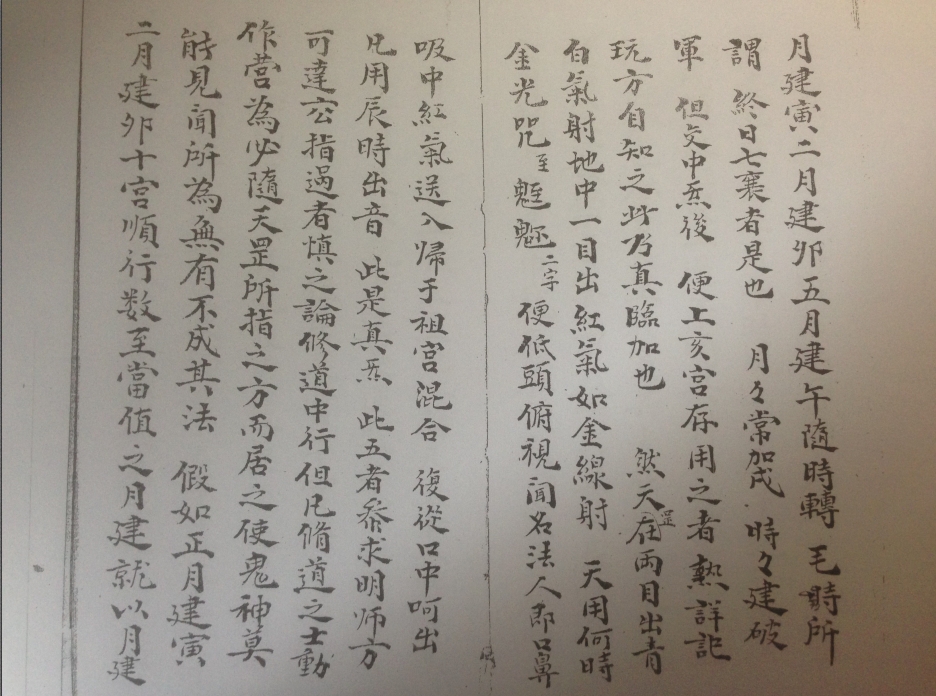 月建寅二月建卯五月建午隨時轉 毛時所
謂 終日七襄者是也 月々常加戌 時々建破
軍 但交中炁後 便上亥宮存用之者熟詳記
玩方自知之此乃真臨加也 然天罡在兩目出青
白氣射地中一目出紅氣如金線射 天用何時
金光咒至魋魓二字便低頭俯視聞名法人即口鼻
吸中紅氣送入歸于祖宮混合 復從口中呵出
凡用辰時出音 此是真炁 此五者叅求明师方
可達玄指過者慎之論修道中行但凡脩道之士動
作营為必隨天罡所指之方而居之使鬼神莫
能見聞所為無有不成其法 假如正月建寅
二月建卯十宮順行数至當值之月建就以月建